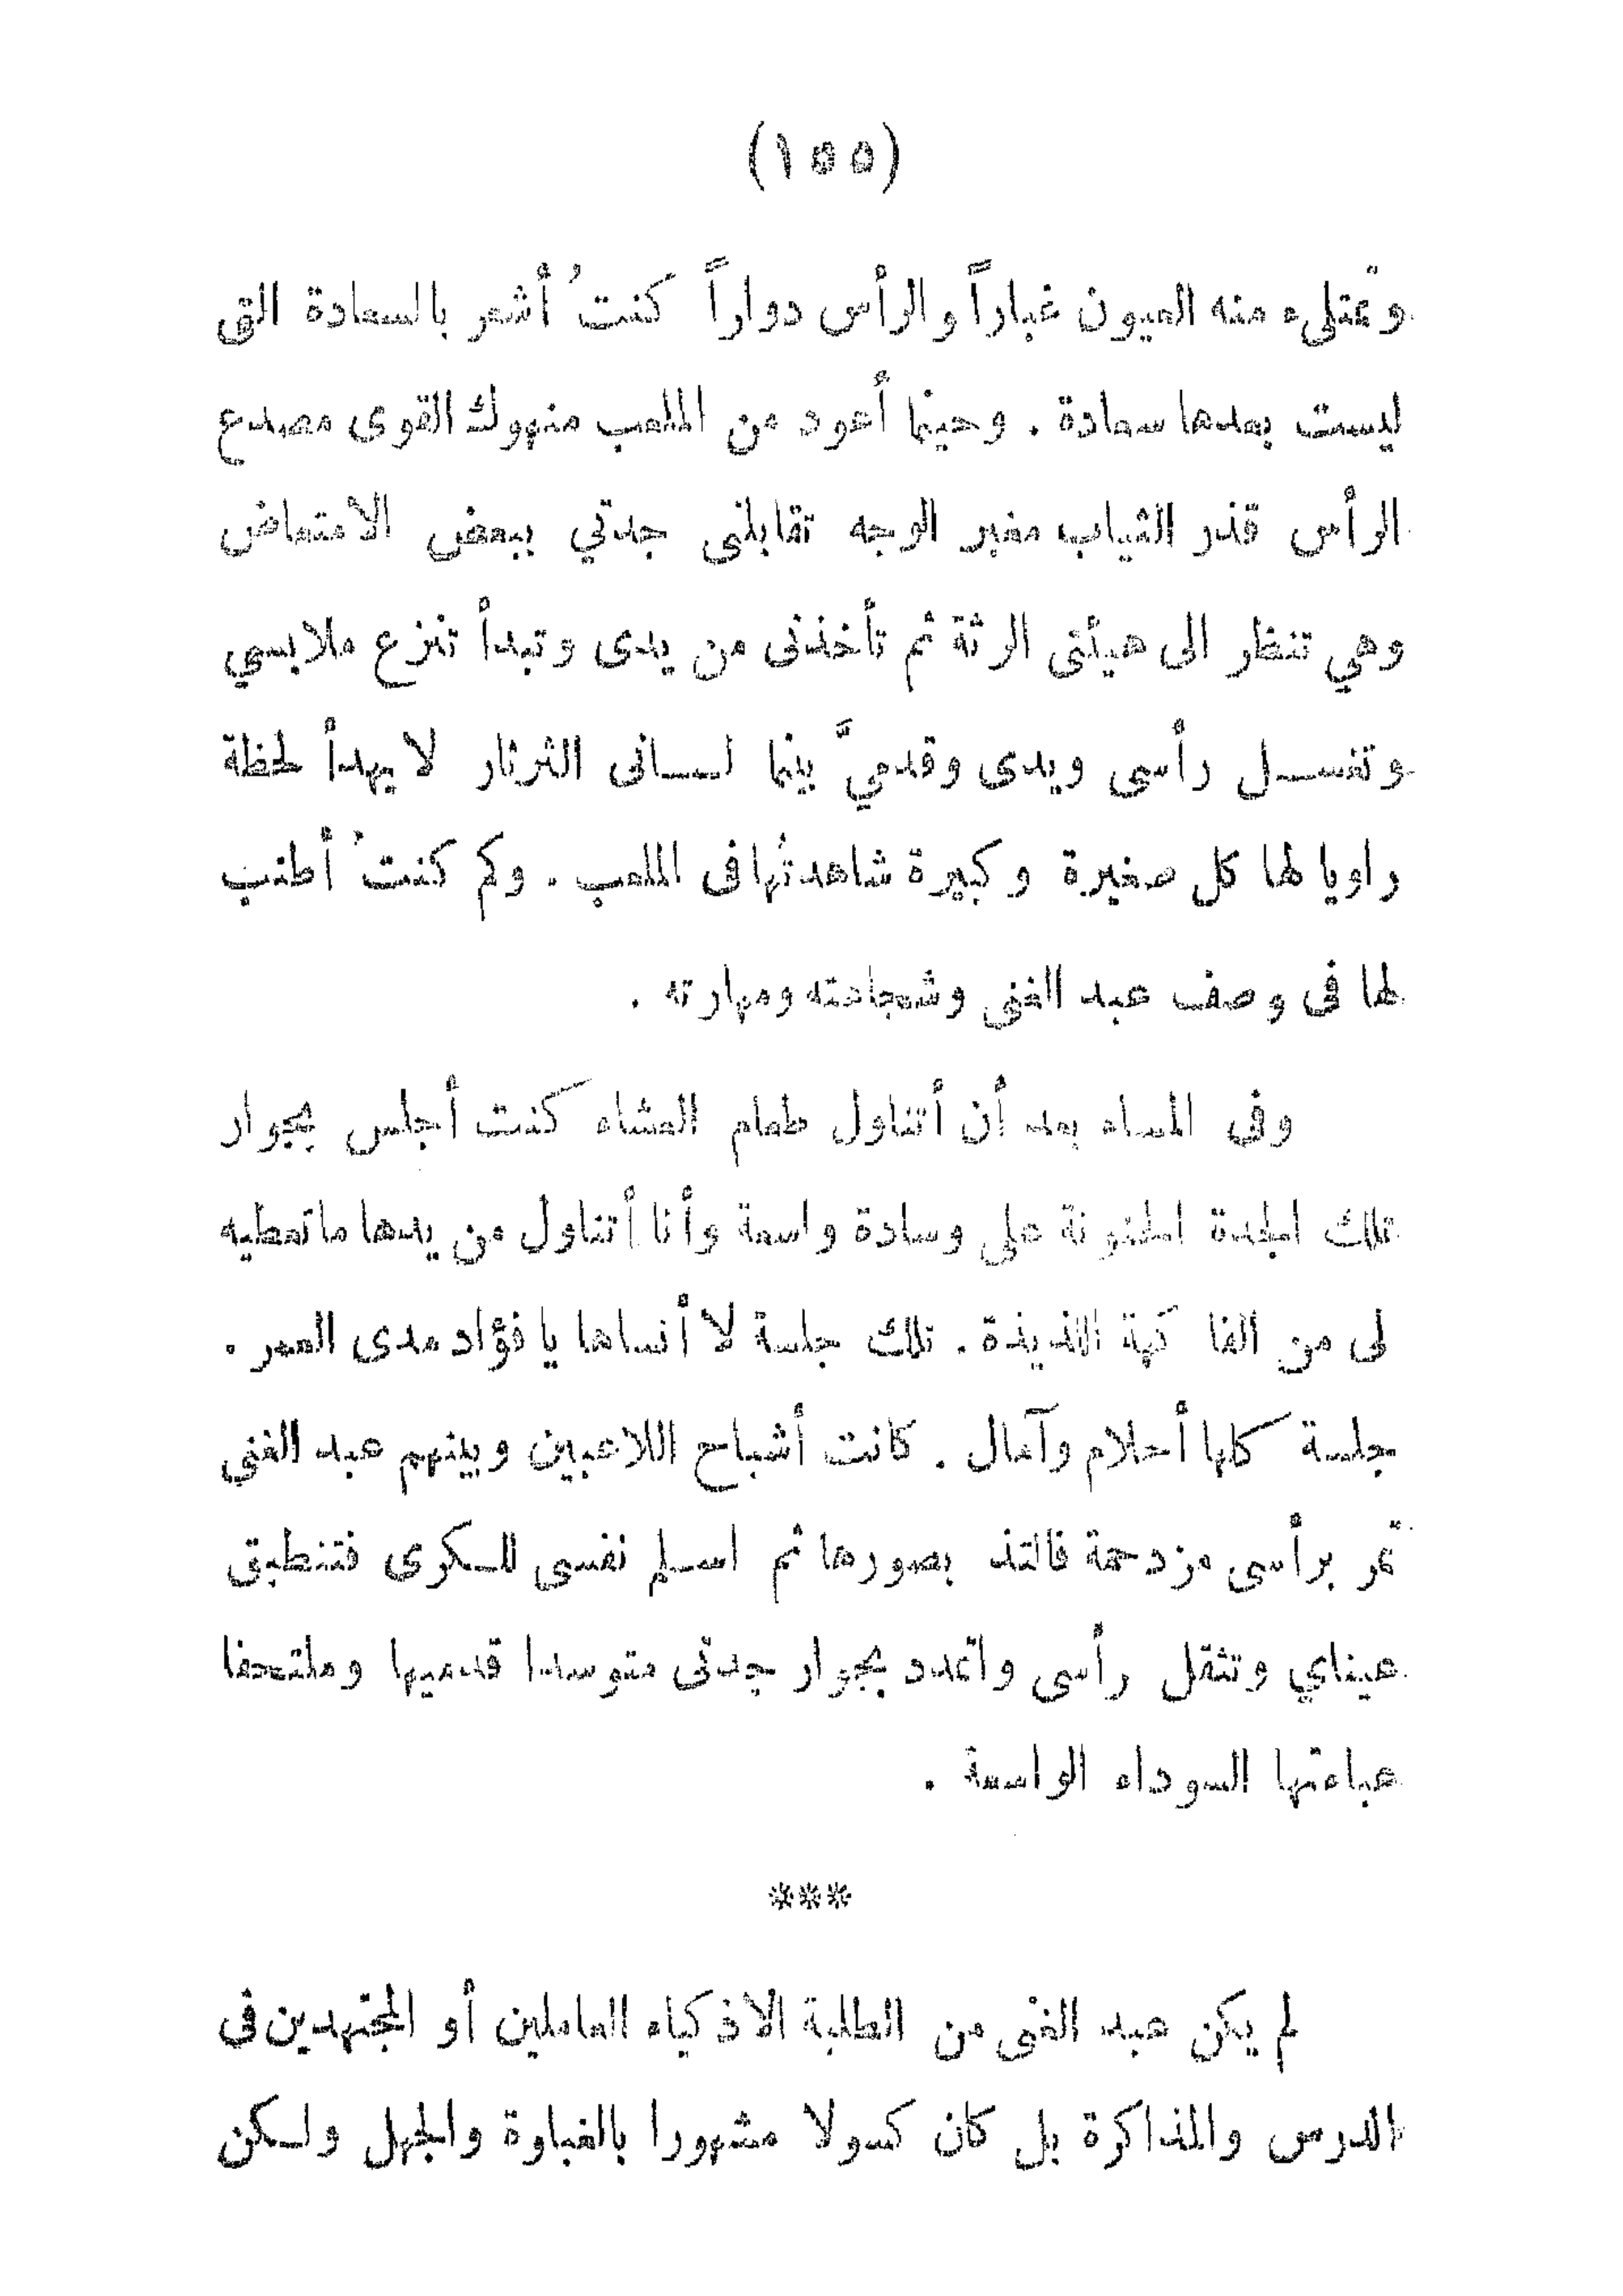 (١٥٥)
وتمتلىء منه العيون غباراً والرأس دواراً كنتُ أشعر بالسعادة التى
ليست بعدها سعادة . وحينما أعود من الملعب منهوك القوى مصدع
الرأس قذر الثياب مغبر الوجه تقابلنى جدتي ببعض الامتعاض
وهي تنظر الى هيئتى الرثة ثم تأخذنى من يدى وتبدأ تنزع ملابسي
وتغسل رأسى ويدى وقدميَّ بينما لسانى الثرثار لا يهدأ لحظة
راويا لها كل صغيرة وكبيرة شاهدتُها فى الملعب . وكم كنتُ أطنب
لها فى وصف عبد الغنى وشجاعته ومهارته .
وفى المساء بعد أن أتناول طعام العشاء كنت أجلس بجوار
تلك الجدة الحنونة على وسادة واسعة وأنا أتناول من يدها ما تعطيه
لى من الفاكهة اللذيذة . تلك جلسة لا أنساها يا فؤاد مدى العمر .
جلسة كلها أحلام وآمال . كانت أشباح اللاعبين وبينهم عبد الغنى
تمر برأسى مزدحمة فالتذ بصورها ثم اسلم نفسى للكرى فتنطبق
عيناي وتثقل رأسى واتمدد بجوار جدتى متوسدا قدميها وملتحفا
عباءتها السوداء الواسعة .
***
لم يكن عبد الغنى من الطلبة الاذكياء العاملين أو المجتهدين فى
الدرس والمذاكرة بل كان كسولا مشهورا بالغباوة والجهل ولكن